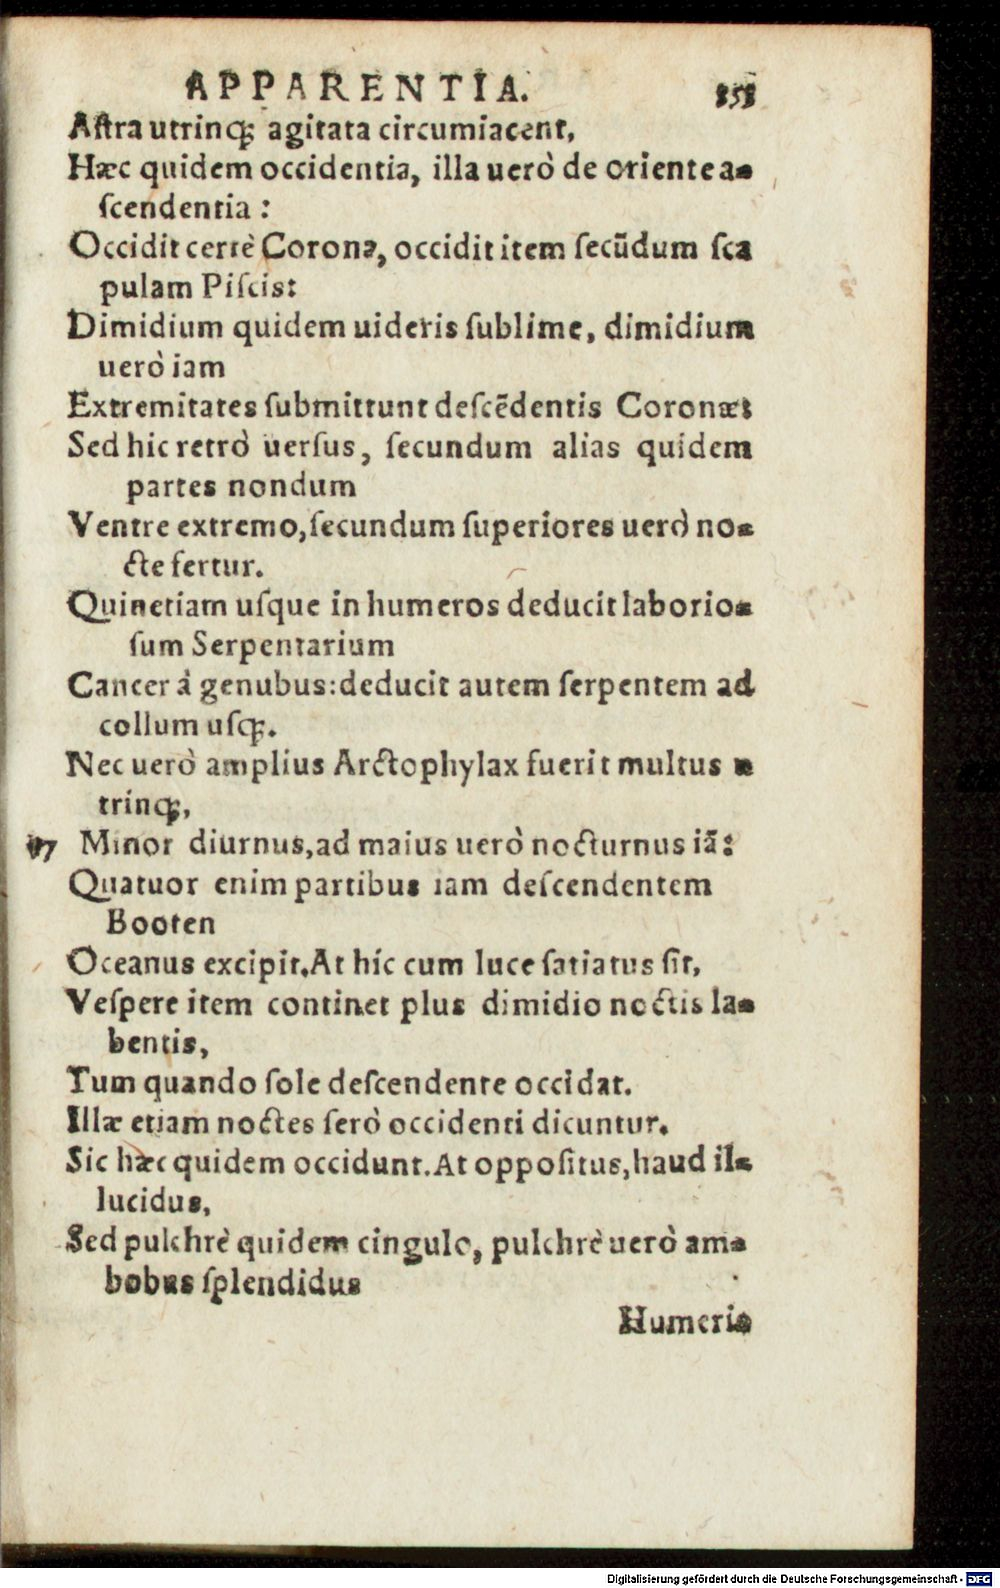 APPARENTIA. 151
Aſtra utrinq; agitata circumiacent,
Hæc quidem occidentia, illa uerò de oriente a-
ſcendentia :
Occidit certè Corona, occidit item ſecũdum ſca
pulam Piſcis:
Dimidium quidem uideris ſublime, dimidium
uerò iam
Extremitates ſubmittunt deſcẽdentis Coronæ:
Sed hic retrò uerſus, ſecundum alias quidem
partes nondum
Ventre extremo, ſecundum ſuperiores uerò no-
cte fertur.
Quinetiam uſque in humeros deducit laborio-
ſum Serpentarium
Cancer á genubus: deducit autem ſerpentem ad
collum uſq;.
Nec uerò amplius Arctophylax fuerit multus u
trinq;,
Minor diurnus, ad maius uerò nocturnus iã:
Quatuor enim partibus iam deſcendentem
Booten
Oceanus excipit. At hic cum luce ſatiatus ſit,
Veſpere item continet plus dimidio noctis la-
bentis,
Tum quando ſole deſcendente occidat.
Illæ etiam noctes ſerò occidenti dicuntur.
Sic hæc quidem occidunt. At oppoſitus, haud il-
lucidus,
Sed pulchrè quidem cingulo, pulchrè uerò am-
bobus ſplendidus
Humeris
Digitalisierung gefördert durch die Deutsche Forschungsgemeinschaft - DFG